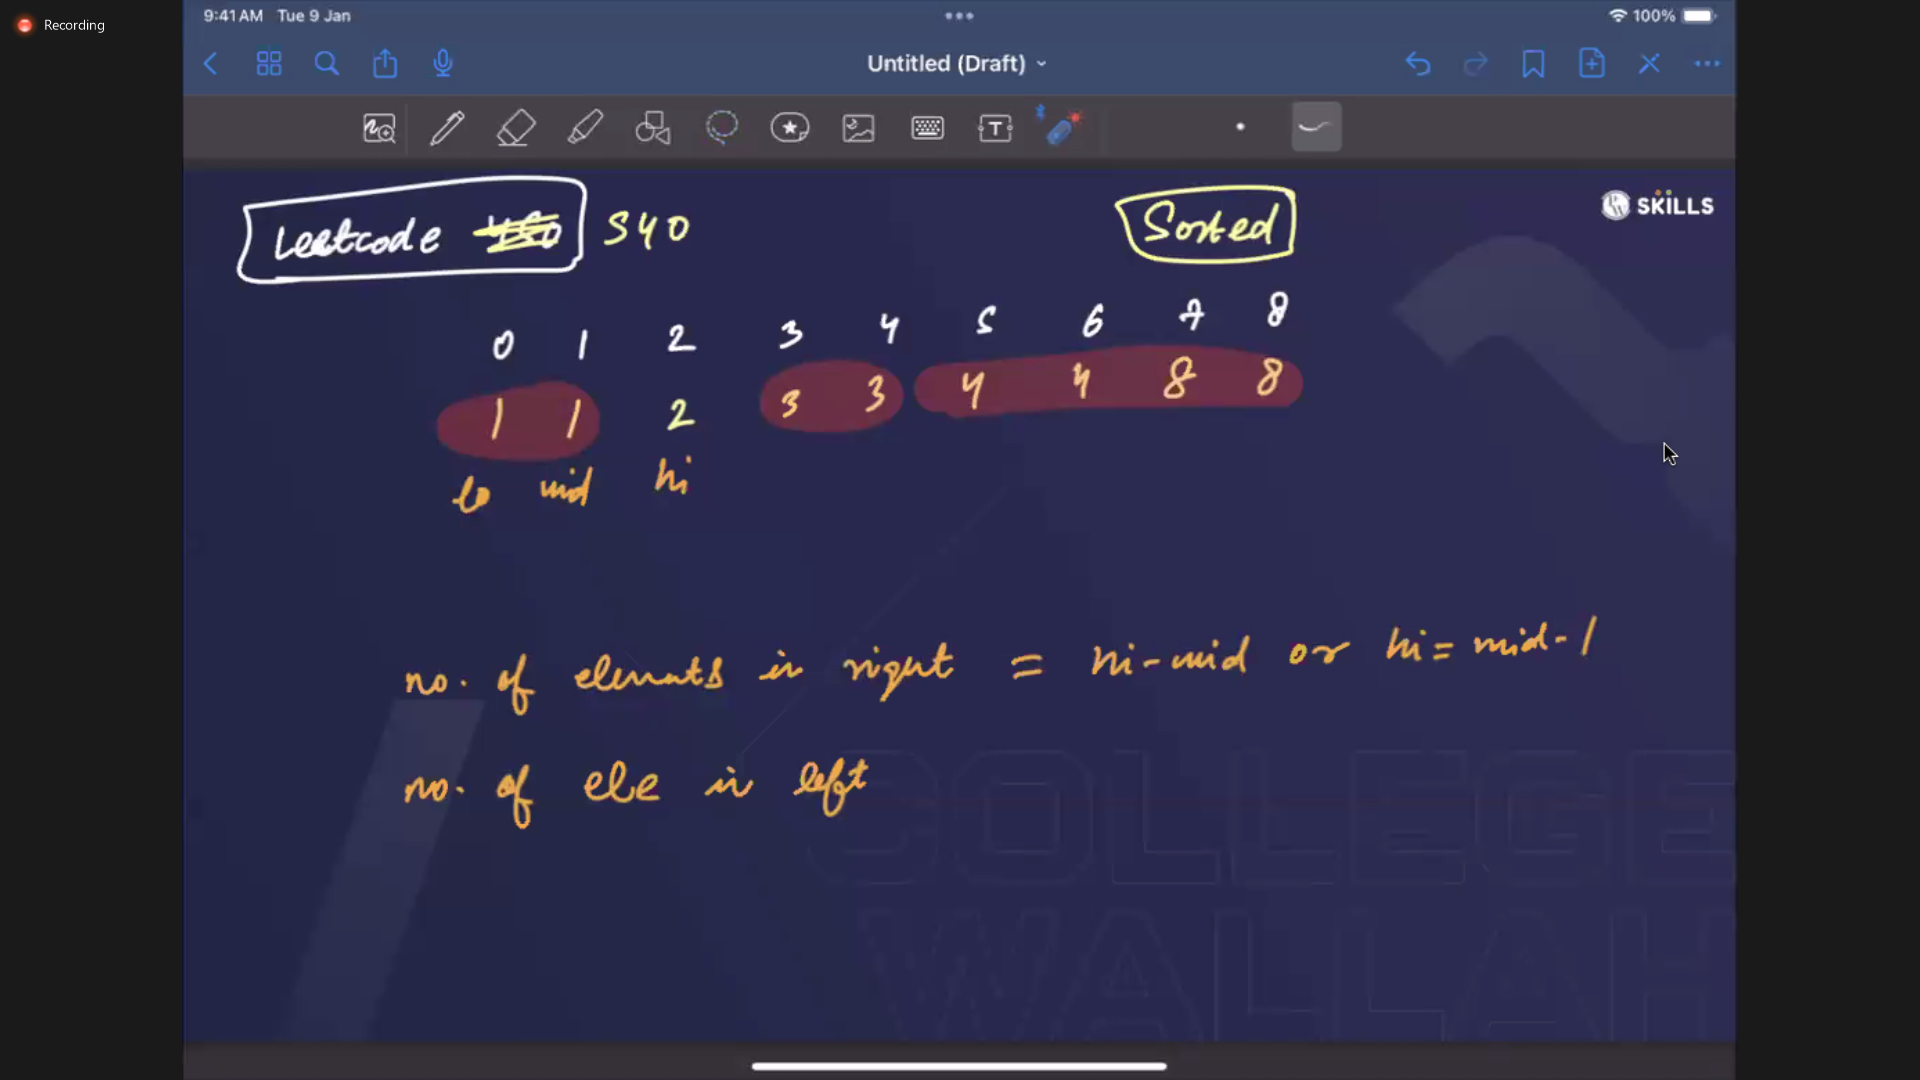 Recording
9:41 AM Tue 9 Jan
100%
Untitled (Draft)
T
Leetcode 540
Sorted
SKILLS
0 1 2 3 4 5 6 7 8
1 1 2 3 3 4 4 8 8
lo mid hi
no. of elements in right = hi-mid or hi = mid-1
no. of ele in left
COLLEGE
WALLAH